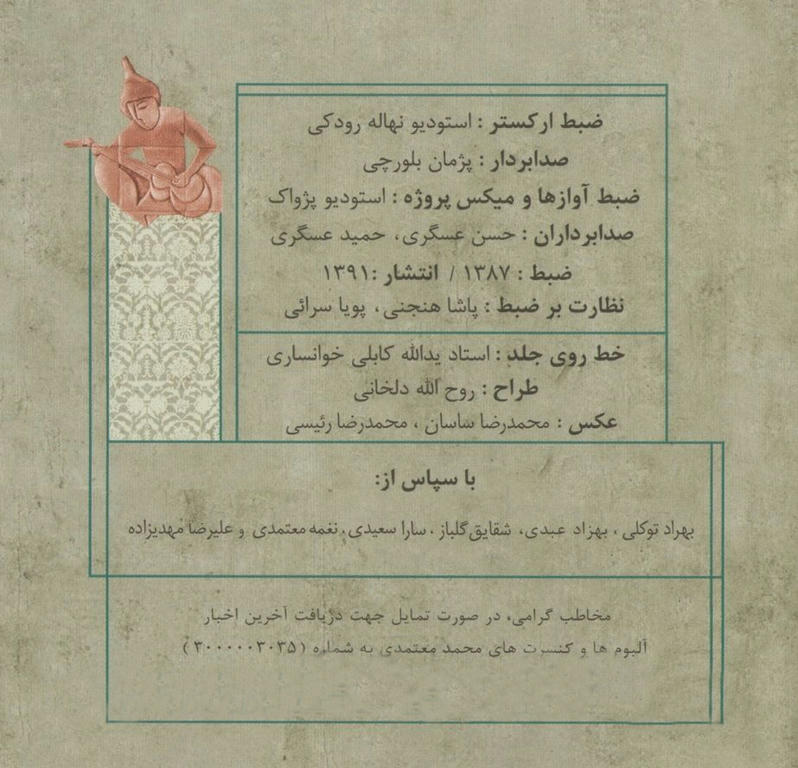 ضبط ارکستر : استودیو نهاله رودکی
صدابردار : پژمان بلورچی
ضبط آوازها و میکس پروژه : استودیو پژواک
صدابرداران : حسن عسگری، حمید عسگری
ضبط : ۱۳۸۷ / انتشار :۱۳۹۱
نظارت بر ضبط : پاشا هنجنی، پویا سرائی
خط روی جلد : استاد یدالله کابلی خوانساری
طراح : روح الله دلخانی
عکس : محمدرضا ساسان ، محمدرضا رئیسی
با سپاس از:
بهراد توکلی ، بهزاد عبدی، شقایق گلباز ، سارا سعیدی، نغمه معتمدی و علیرضا مهدیزاده
مخاطب گرامی، در صورت تمایل جهت دریافت آخرین اخبار
آلبوم ها و کنسرت های محمد معتمدی به شماره (۳۰۰۰۰۰۳۰۳۵)